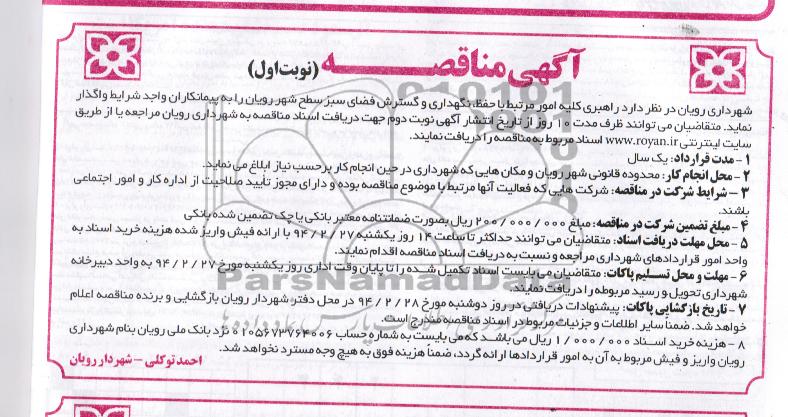 آگهی مناقصه (نوبت اول)
شهرداری رویان در نظر دارد راهبری کلیه امور مرتبط با حفظ، نگهداری و گسترش فضای سبز سطح شهر رویان را به پیمانکاران واجد شرایط واگذار
نماید. متقاضیان می توانند ظرف مدت ۱۰ روز از تاریخ انتشار آگهی نوبت دوم جهت دریافت اسناد مناقصه به شهرداری رویان مراجعه یا از طریق
سایت اینترنتی www.royan.ir اسناد مربوط به مناقصه را دریافت نمایند.
۱ – مدت قرارداد: یک سال
۲ – محل انجام کار: محدوده قانونی شهر رویان و مکان هایی که شهرداری در حین انجام کار برحسب نیاز ابلاغ می نماید.
۳ – شرایط شرکت در مناقصه: شرکت هایی که فعالیت آنها مرتبط با موضوع مناقصه بوده و دارای مجوز تأیید صلاحیت از اداره کار و امور اجتماعی
باشند.
۴ – مبلغ تضمین شرکت در مناقصه: مبلغ ۲۰۰/۰۰۰/۰۰۰ ریال بصورت ضمانتنامه معتبر بانکی یا چک تضمین شده بانکی
۵ – محل مهلت دریافت اسناد: متقاضیان می توانند حداکثر تا ساعت ۱۴ روز یکشنبه ۹۴/۲/۲۷ با ارائه فیش واریز شده هزینه خرید اسناد به
واحد امور قراردادهای شهرداری مراجعه و نسبت به دریافت اسناد مناقصه اقدام نمایند.
۶ – مهلت و محل تسلیم پاکات: متقاضیان می بایست اسناد تکمیل شده را تا پایان وقت اداری روز یکشنبه مورخ ۹۴/۲/۲۷ به واحد دبیرخانه
شهرداری تحویل و رسید مربوطه را دریافت نمایند.
۷ – تاریخ بازگشایی پاکات: پیشنهادات دریافتی در روز دوشنبه مورخ ۹۴/۲/۲۸ در محل دفتر شهردار رویان بازگشایی و برنده مناقصه اعلام
خواهد شد. ضمنا سایر اطلاعات و جزئیات مربوط در اسناد مناقصه مندرج است.
۸ – هزینه خرید اسناد ۱/۰۰۰/۰۰۰ ریال می باشد که می بایست به شماره حساب ۰۱۰۵۶۷۳۷۶۴۰۰۶ نزد بانک ملی رویان بنام شهرداری
رویان واریز و فیش مربوط به آن به امور قراردادها ارائه گردد، ضمناً هزینه فوق به هیچ وجه مسترد نخواهد شد.
احمد توکلی – شهردار رویان
ParsNamadData